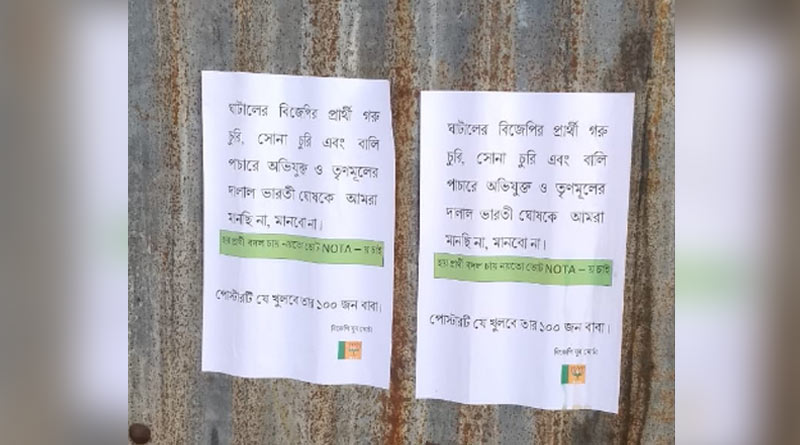 ঘাটালের বিজেপির প্রার্থী গরু
চুরি, সোনা চুরি এবং বালি
পচারে অভিযুক্ত ও তৃণমূলের
দালাল ভারতী ঘোষকে আমরা
মানছি না, মানবো না।
হয় প্রার্থী বদল চায় নয়তো ভোট NOTA – য় চাই
পোস্টারটি যে খুলবে তার ১০০ জন বাবা।
বিজেপি যুব মোর্চা
ঘাটালের বিজেপির প্রার্থী গরু
চুরি, সোনা চুরি এবং বালি
পাচারে অভিযুক্ত ও তৃণমূলের
দালাল ভারতী ঘোষকে আমরা
মানছি না, মানবো না।
হয় প্রার্থী বদল চায় নয়তো ভোট NOTA – য় চাই
পোস্টারটি যে খুলবে তার ১০০ জন বাবা।
বিজেপি যুব মোর্চা